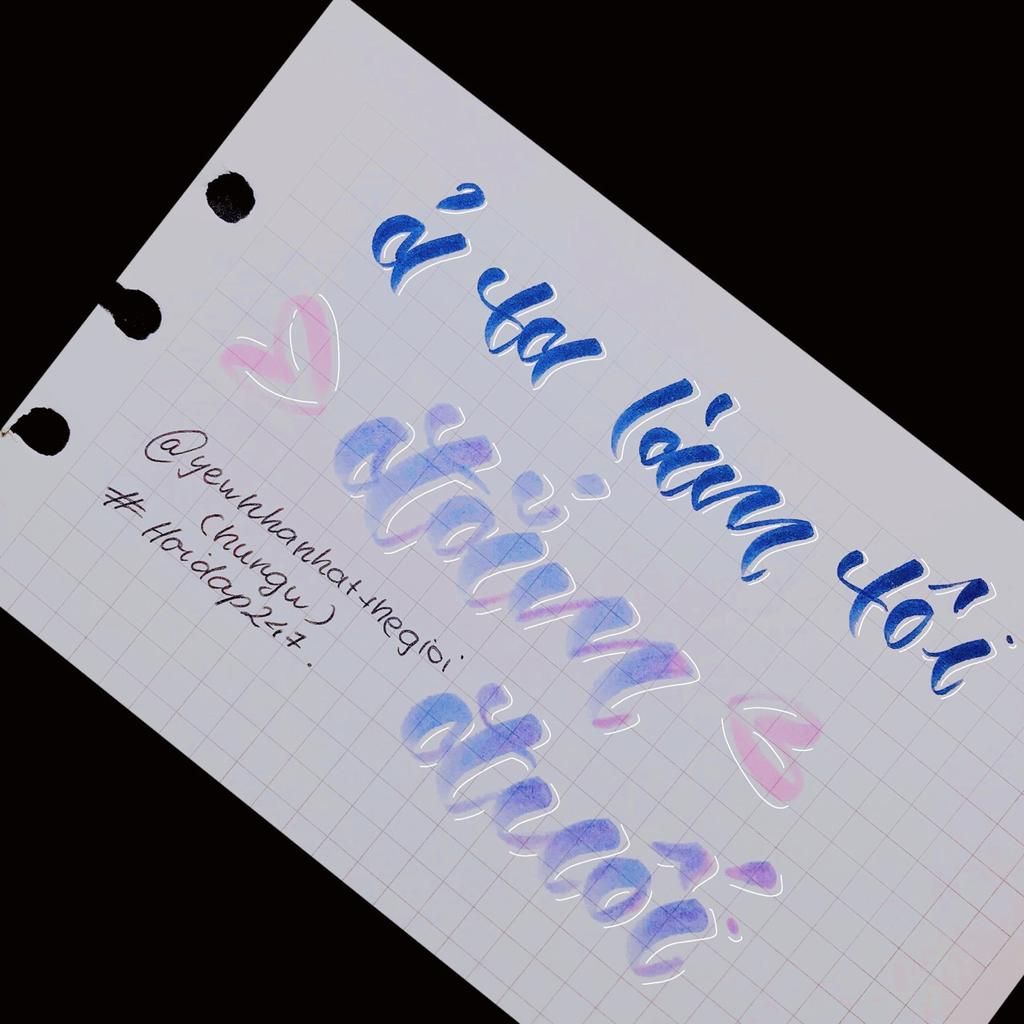 ả ta làm tôi
đắm
đuối
@yeunhanhatthegioi
(hungu)
#Hoidap247.